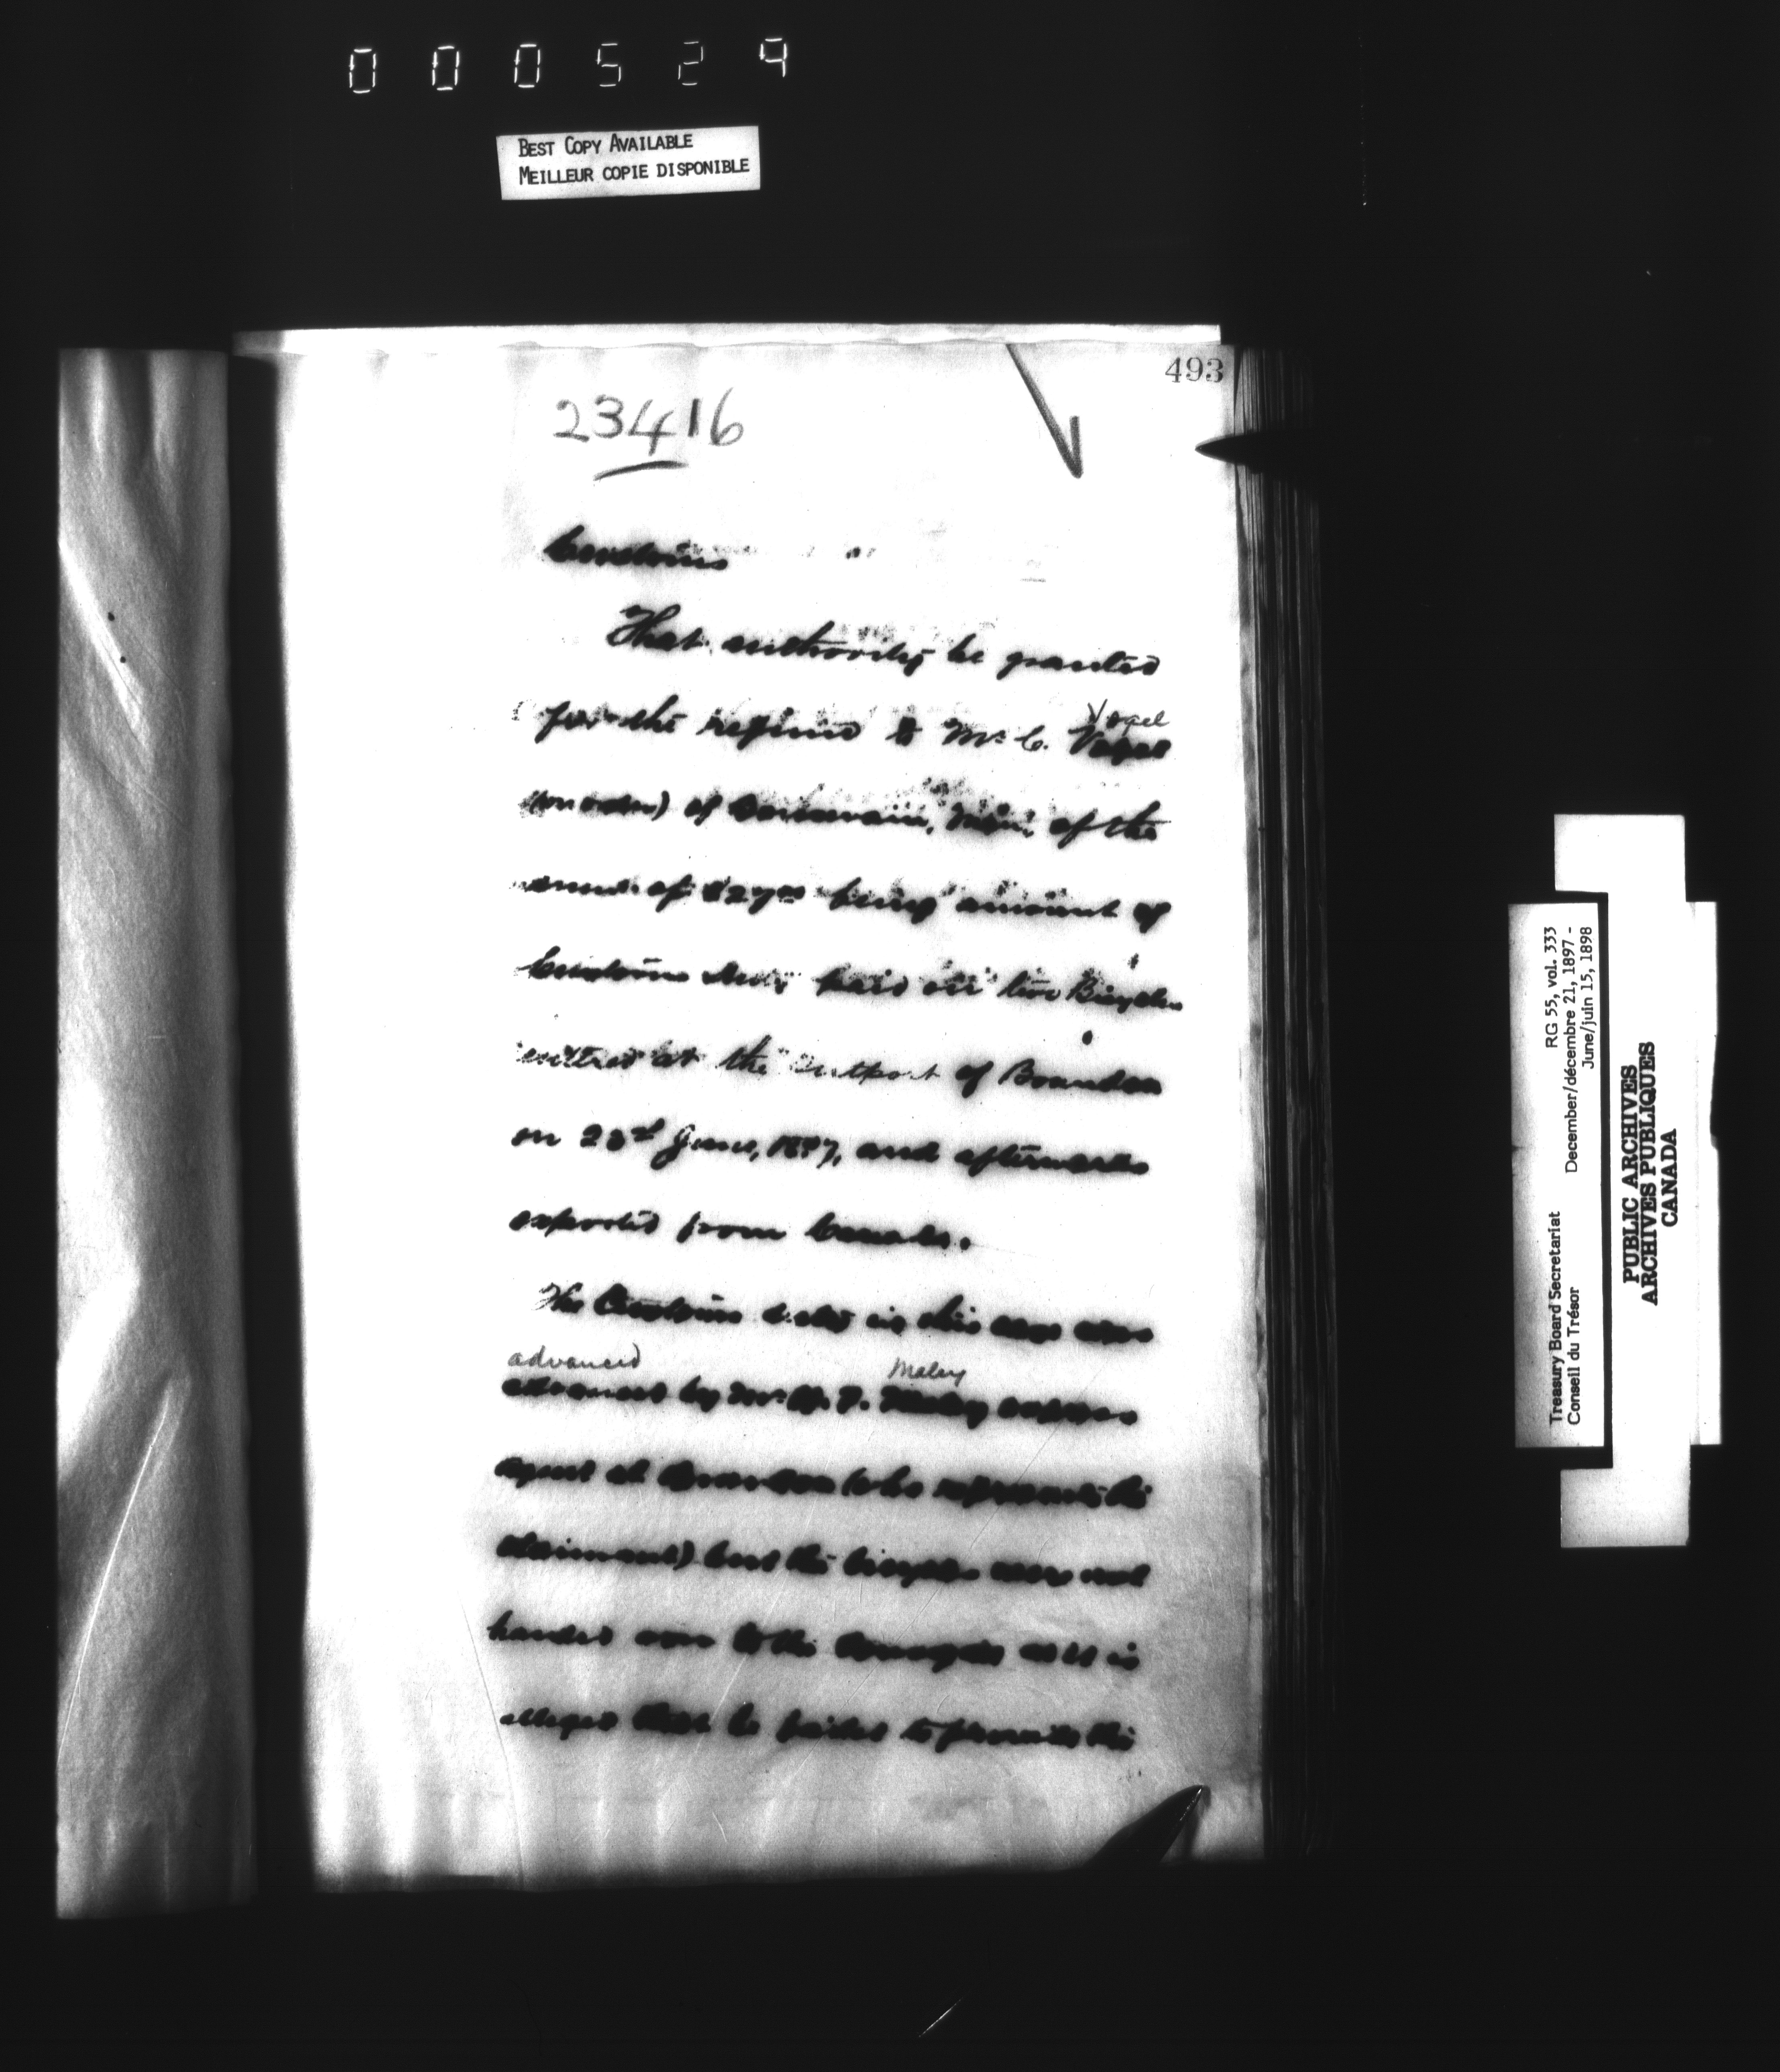 000529
BEST COPY AVAILABLE
MEILLEUR COPIE DISPONIBLE
493
23416
Customs
That authority be granted
Vogel
for the refund to Mr. C. Vogel
(or order) of Boissevain, Man. of the
sum of $27.00 being amount of
Customs duty paid on two Bicycles
entered at the outport of Brandon
on 23rd June, 1897, and afterwards
exported from Canada.
The Customs duty in this case was
advanced Maley
advanced by Mr. F. Maley express
agent at Brandon (who represents the
claimant) but the bicycles were not
handed over to the consignee as it is
alleged that he failed to furnish the
RG 55, vol. 333
December/décembre 21, 1897 -
June/juin 15, 1898
Treasury Board Secretariat
Conseil du Trésor
PUBLIC ARCHIVES
ARCHIVES PUBLIQUES
CANADA